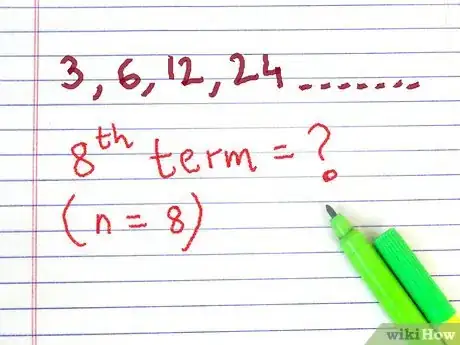 3, 6, 12, 24 ........
8th term = ?
(n = 8)
wikiHow